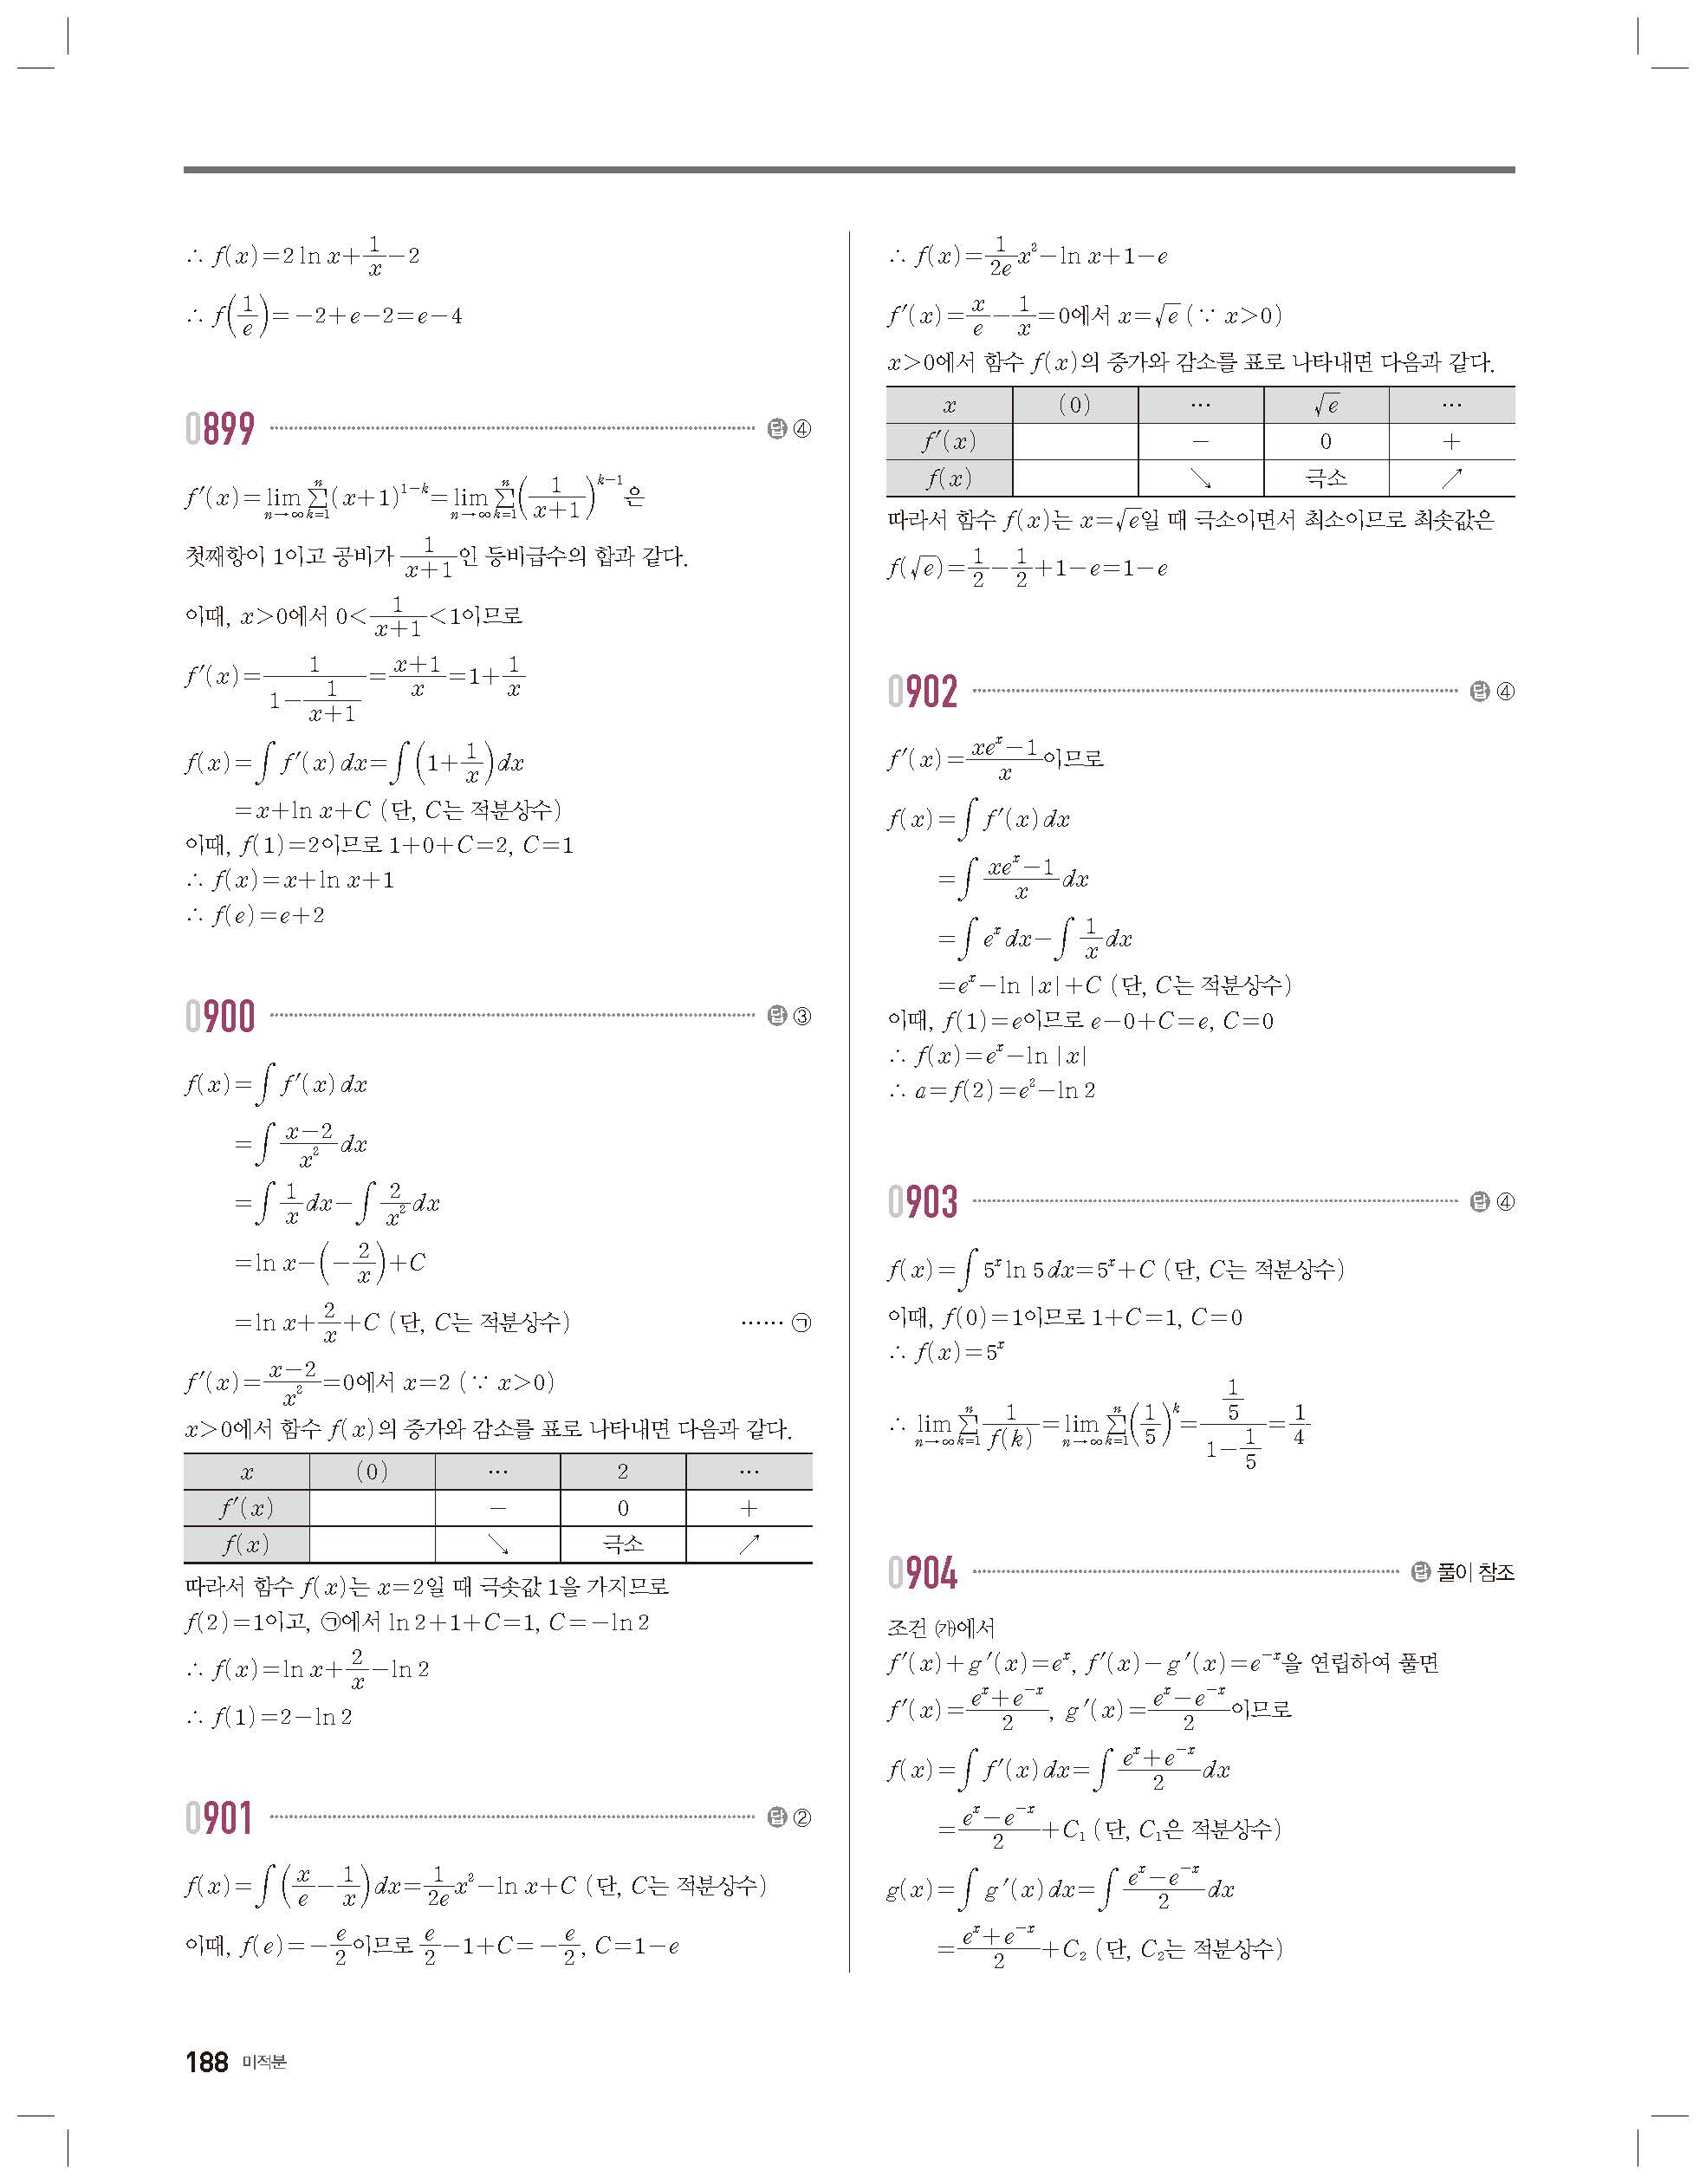 ∴ f(x)=2 ln x+1/x-2
∴ f(1/e)=-2+e-2=e-4
0899 답 ④
f′(x)=lim_{n→∞} Σ_{k=1}^{n} (x+1)^{1-k}=lim_{n→∞} Σ_{k=1}^{n} (1/(x+1))^{k-1}은
첫째항이 1이고 공비가 1/(x+1)인 등비급수의 합과 같다.
이때, x>0에서 0<1/(x+1)<1이므로
f′(x)=1/(1-1/(x+1))=(x+1)/x=1+1/x
f(x)=∫ f′(x)dx=∫ (1+1/x)dx
=x+ln x+C (단, C는 적분상수)
이때, f(1)=2이므로 1+0+C=2, C=1
∴ f(x)=x+ln x+1
∴ f(e)=e+2
0900 답 ③
f(x)=∫ f′(x)dx
=∫ (x-2)/x² dx
=∫ 1/x dx-∫ 2/x² dx
=ln x-(-2/x)+C
=ln x+2/x+C (단, C는 적분상수) ⋯⋯ ㉠
f′(x)=(x-2)/x²=0에서 x=2 (∵ x>0)
x>0에서 함수 f(x)의 증가와 감소를 표로 나타내면 다음과 같다.
x (0) ⋯ 2 ⋯
f′(x) - 0 +
f(x) ↘ 극소 ↗
따라서 함수 f(x)는 x=2일 때 극솟값 1을 가지므로
f(2)=1이고, ㉠에서 ln 2+1+C=1, C=-ln 2
∴ f(x)=ln x+2/x-ln 2
∴ f(1)=2-ln 2
0901 답 ②
f(x)=∫ (x/e-1/x)dx=1/(2e) x²-ln x+C (단, C는 적분상수)
이때, f(e)=-e/2이므로 e/2-1+C=-e/2, C=1-e
∴ f(x)=1/(2e) x²-ln x+1-e
f′(x)=x/e-1/x=0에서 x=√e (∵ x>0)
x>0에서 함수 f(x)의 증가와 감소를 표로 나타내면 다음과 같다.
x (0) ⋯ √e ⋯
f′(x) - 0 +
f(x) ↘ 극소 ↗
따라서 함수 f(x)는 x=√e일 때 극소이면서 최소이므로 최솟값은
f(√e)=1/2-1/2+1-e=1-e
0902 답 ④
f′(x)=(xe^x-1)/x이므로
f(x)=∫ f′(x)dx
=∫ (xe^x-1)/x dx
=∫ e^x dx-∫ 1/x dx
=e^x-ln |x|+C (단, C는 적분상수)
이때, f(1)=e이므로 e-0+C=e, C=0
∴ f(x)=e^x-ln |x|
∴ a=f(2)=e²-ln 2
0903 답 ④
f(x)=∫ 5^x ln 5 dx=5^x+C (단, C는 적분상수)
이때, f(0)=1이므로 1+C=1, C=0
∴ f(x)=5^x
∴ lim_{n→∞} Σ_{k=1}^{n} 1/f(k)=lim_{n→∞} Σ_{k=1}^{n} (1/5)^k=(1/5)/(1-1/5)=1/4
0904 답 풀이 참조
조건 ㈎에서
f′(x)+g′(x)=e^x, f′(x)-g′(x)=e^{-x}을 연립하여 풀면
f′(x)=(e^x+e^{-x})/2, g′(x)=(e^x-e^{-x})/2이므로
f(x)=∫ f′(x)dx=∫ (e^x+e^{-x})/2 dx
=(e^x-e^{-x})/2+C₁ (단, C₁은 적분상수)
g(x)=∫ g′(x)dx=∫ (e^x-e^{-x})/2 dx
=(e^x+e^{-x})/2+C₂ (단, C₂는 적분상수)
188 미적분